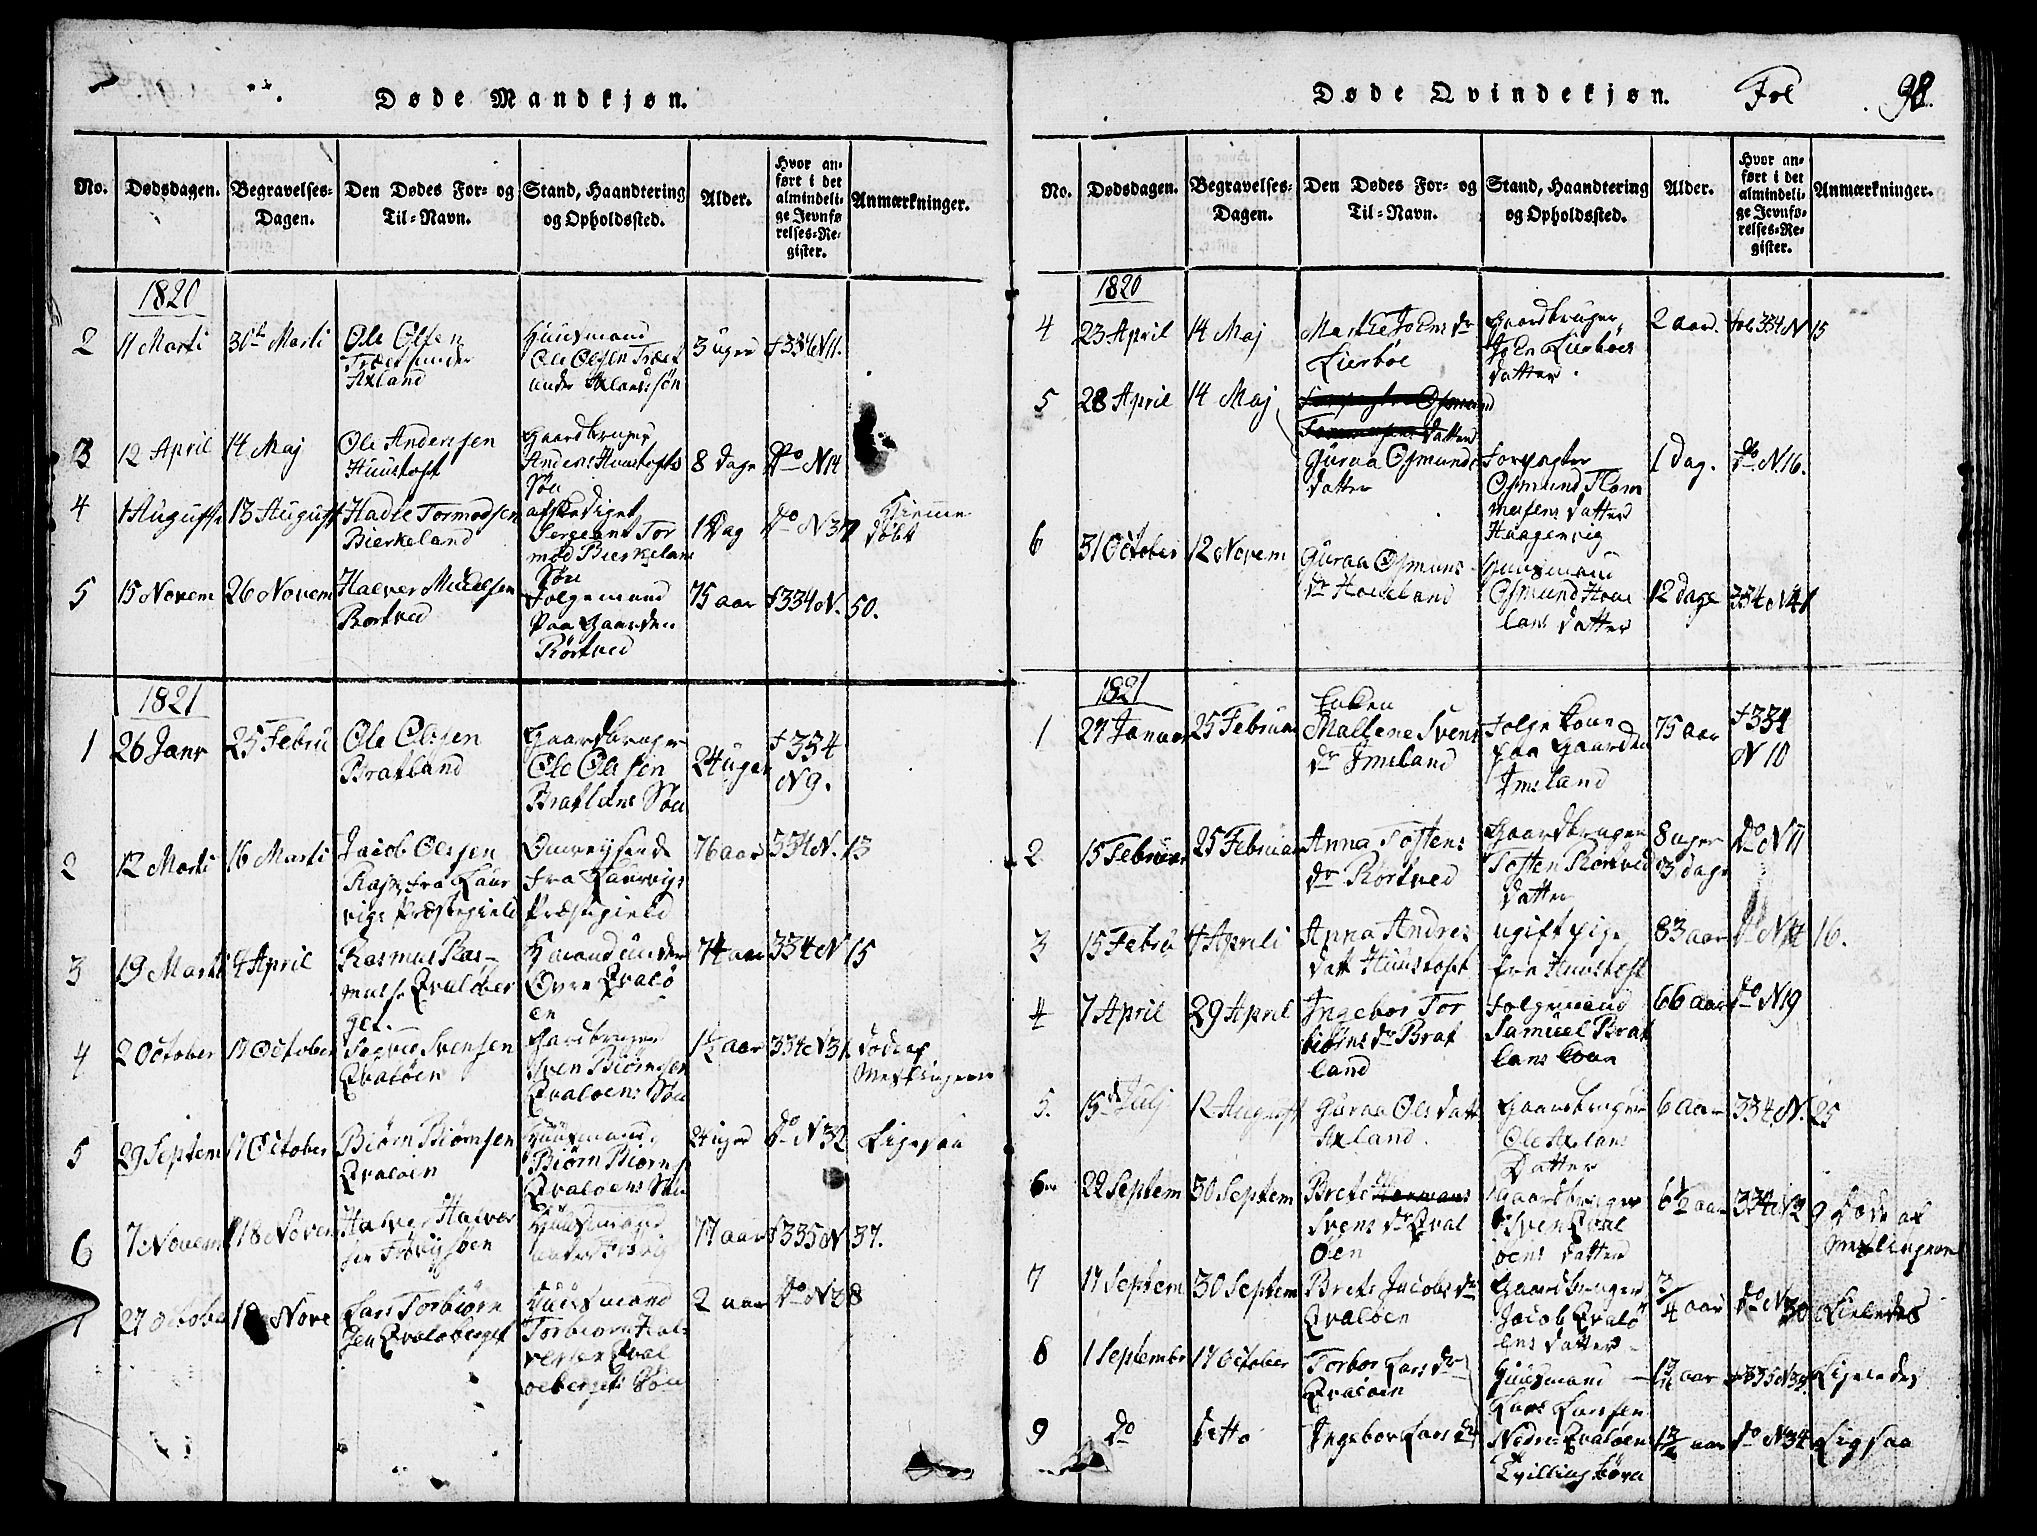 Døde Mandkjøn.
No.
Dødsdagen.
Begravelses-
Dagen.
Den Dødes For- og
Til-Navn.
Stand, Haandtering
og Opholdssted.
Alder.
Hvor an-
ført i det
almindeli-
ge Jevnfø
relses-Re-
gister.
Anmærkninger.
1820
2 11 Marti 30 Marti Ole Olsen
Axland
Huusmand
Ole Olsen
under Axland søn
3 uger 334 N 11.
3 12 April 14 Maj Ole Andersen
Huustoft
Gaardbruger
Anders Huustofts
Søn
8 Dage Do N 14
4 1 August 13 August Hadle Tormodsen
Bierkeland
afskediget
Sergeant Tor
mod Bierkeland
Søn
1 Dag Do N 37 Hjemme
døbt
5 15 Novem 26 Novem Halver
Rørtved
Folgemand
paa Gaarden
Rørtved
75 aar 334 N. 50.
1821
1 26 Janr 25 Febru Ole Olsen
Bratland
Gaardbruger
Ole Olsen
Bratlands Søn
24 uger 334
N 9.
2 12 Marti 16 Marti Jacob Olsen
fra Laur
vigs Præstegield
Omreysende
fra Laurvigs
Præstegield
76 aar 334 N. 13
3 19 Marti 4 April Rasmus Ras-
muss. Qvaløber
get.
under
Øvre Qvalø
en
74 aar 334 N 15
4 2 October 17 October Svensen
Qvaløen
Gardbruger
Sven Biørnsen
Qvaløens Søn
1½ aar 334 N 31. døde af
Meslingerne
5 29 Septem 17 October Biørn Biørnsen
Qvaløen
Huusmand
Biørn Biørns
Qvaløens Søn
24 uger Do N 32 Ligesaa
6 7 Novem 18 Novem Halver Halver
sen
Huusmand
under
77 aar 335 N 37.
7 27 October 18 Nove Lars Torbiørn
sen Qvaløberget
Huusmand
Torbiørn Hal-
versen Qval
øebergets Søn
2 aar Do N 38
Døde Qvindekjøn. Fol 98.
No.
Dødsdagen.
Begravelses-
Dagen.
Den Dødes For- og
Til-Navn.
Stand, Haandtering
og Opholdssted.
Alder.
Hvor an-
ført i det
almindeli-
ge Jevnfø-
relses-Re-
gister.
Anmærkninger.
1820
4 23 April 14 Maj Marthe Joens dr
Lierbøe
Gaardbruger
Joen Lierbøes
datter.
2 aar. fol 334 N 15
5 28 April 14 Maj Osmund
datter
Guraa Osmunds
datter
Forpagter
Osmund Tom
mesens datter
Haagenvig
1 Dag. Do N 16.
6 31 October 12 Novem Guraa Osmuns
dr Houeland
Huusmand
Osmund Houe
lans datter
12 dage 334 N 41
1821
1 27 Januar 25 Februar Enken
Mallene Svens
dr Imsland
Folge Kone
paa Gaarden
Imsland
75 aar 334
N 10
2 15 Februar 25 Februar Anna Tostens
dr Rørtved
Gaardbruger
Tosten Rørtved
datter
8 uger
3 dage
Do N 11
3 15 Febru 4 Aprili Anna Andres
datt Huustoft
ugift pige
fra Huustoft
83 aar Do N 16.
4 7 April 29 April Ingebor Tor
biørns dr Brat
land
Folgemand
Samuel Brat
lans kone
66 aar Do N 19
5. 15de Julj 12 August Guraa Ols datt
Axland.
Gaardbruger
Ole Axlans
Datter
6 aar 334 N. 25
6 22 Septem 30 Septem Brete
Svens dr Qval
øen
Gaardbruger
Sven Qval
øens datter
6½ aar 334 N 29 Døde af
Meslingerne
7 17 Septem 30 Septem Brete Jacobs dr
Qvaløen
Gaardbruger
Jacob Qvalø
ens datter
3/4 aar Do N 30 Ligeledes
8 1 Septembr 17 October Torbor Lars dr
Qvaløen
Huusmand
Lars Larsen
aar 335 N 33 Ligeledes
9 Do ditto Ingebor Lars dr
Nedre Qvaløen
Tvilling børn
aar Do N 34 Ligesaa